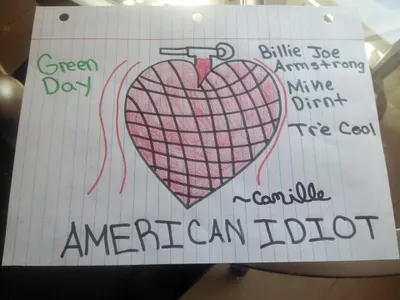 Green
Day
Billie Joe
Armstrong
Mike
Dirnt
Tr'e Cool
~Camille
AMERICAN IDIOT